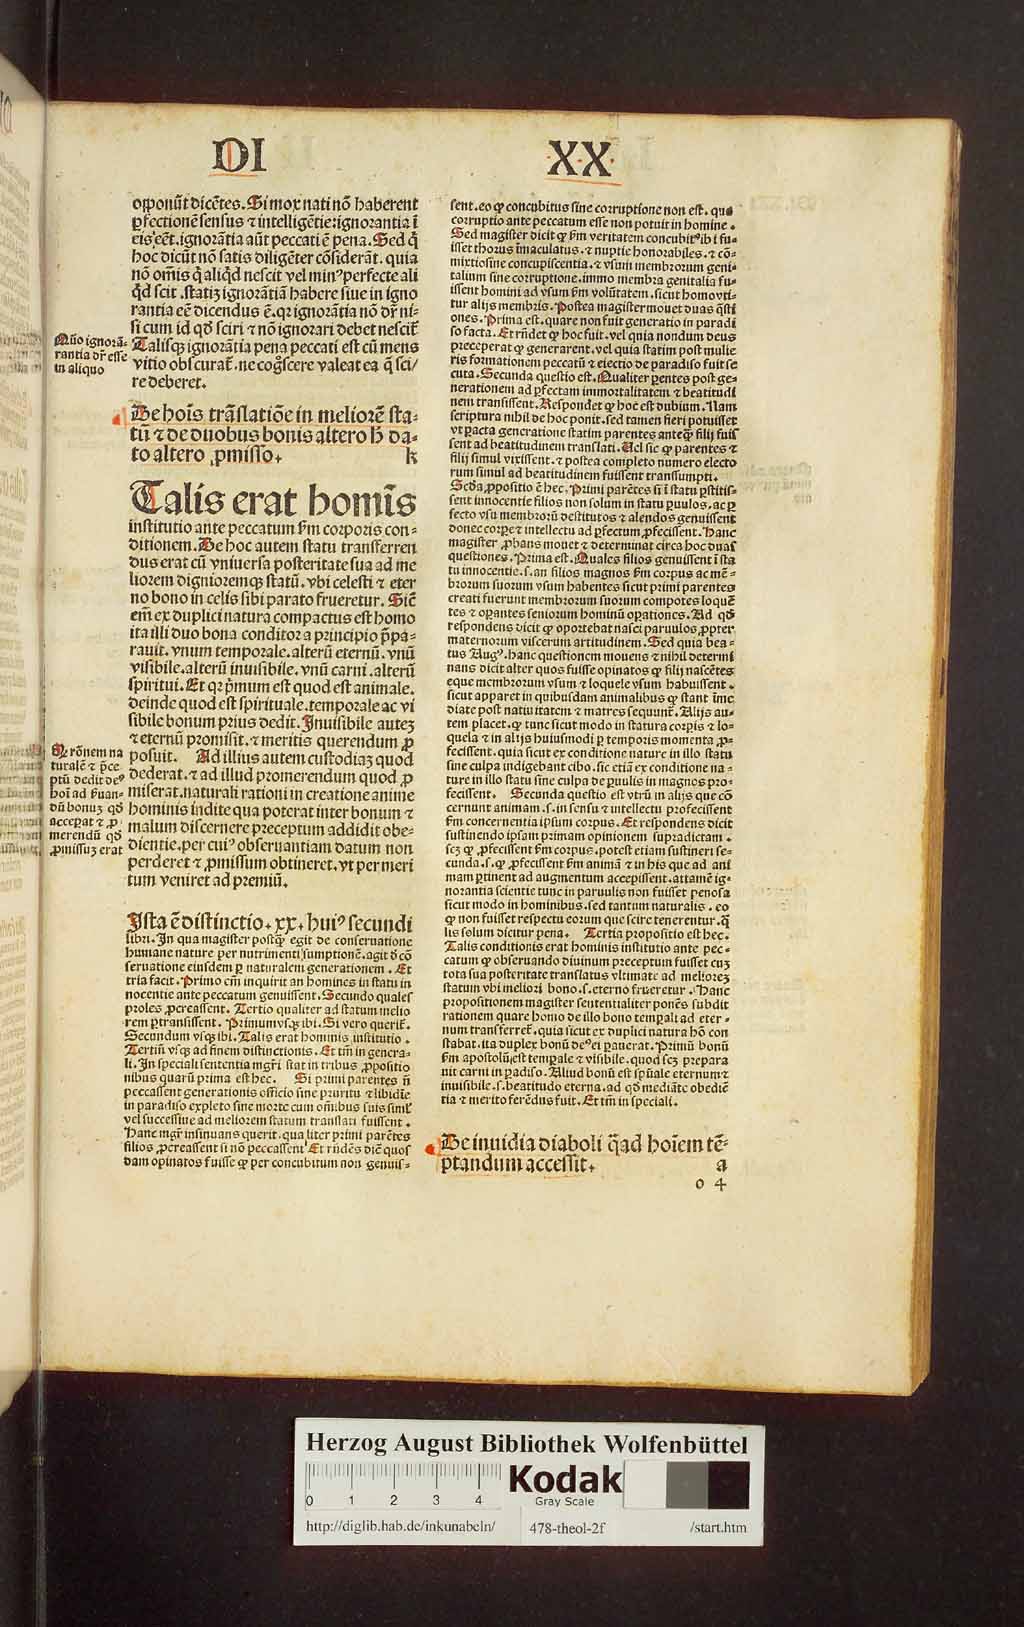 DI XX
opponūt dicētes. Si mox nati nō haberent
ꝑfectionē sensus ⁊ intelligētie: ignorantia ī
eis eēt. ignorātia aūt peccati ē pena. Sed q̄
hoc dicūt nō satis diligēter cōsiderāt. quia
nō om̄is q̄ aliq̄d nescit vel minꝰ perfecte ali
q̄d scit. statiꝫ ignorātiā habere siue in igno
rantia eē dicendus ē. qr ignorātia nō dr̄ ni-
si cum id qd̄ sciri ⁊ nō ignorari debet nescit̄
Talisqꝫ ignorātia pena peccati est cū mens
vitio obscurat̄. ne cog̊scere valeat ea q̄ sci/
re deberet.
Nūo ignorā-
rantia dr̄ esse
in aliquo
De hoīs trāslatiōe in meliorē sta-
tū ⁊ de duobus bonis altero h̄ da-
to altero ꝓmisso. k
Talis erat homīs
institutio ante peccatum ẜm corporis con-
ditionem. De hoc autem statu transferren
dus erat cū vniuersa posteritate sua ad me
liorem dignioremqꝫ statū. vbi celesti ⁊ eter
no bono in celis sibi parato frueretur. Sicē
em̄ ex duplici natura compactus est homo
ita illi duo bona conditor a principio p̄pa-
rauit. vnum temporale. alterū eternū. vnū
visibile. alterū inuisibile. vnū carni. alterū
spiritui. Et qr p̄mum est quod est animale.
deinde quod est spirituale. temporale ac vi
sibile bonum prius dedit. Inuisibile auteꝫ
⁊ eternū promisit. ⁊ meritis querendum ꝓ
posuit. Ad illius autem custodiaꝫ quod
dederat. ⁊ ad illud promerendum quod ꝓ
miserat. naturali rationi in creatione anime
hominis indite qua poterat inter bonum ⁊
malum discernere preceptum addidit obe-
dientie. per cuiꝰ obseruantiam datum non
perderet ⁊ ꝓmissum obtineret. vt per meri
tum veniret ad premiū.
Qr rōnem na
turalē ⁊ p̄ce
ptū dedit deꝰ
hoī ad ẜuan-
dū bonuꝫ qd̄
acceꝑat ⁊ ꝓ
merendū qd̄
ꝓmissuꝫ erat
Ista ē distinctio. xx. huiꝰ secundi
libri. In qua magister postq̄ egit de conseruatione
humane nature per nutrimenti sumptionē. agit d̄ cō
seruatione eiusdem ꝑ naturalem generationem. Et
tria facit. Primo em̄ inquirit an homines in statu in
nocentie ante peccatum genuissent. Secundo quales
proles ꝓcreassent. Tertio qualiter ad statum melio
rem ꝑtransissent. Primum vsqꝫ ibi. Si vero querit̄.
Secundum vsqꝫ ibi. Talis erat hominis institutio.
Tertiū vsqꝫ ad finem distinctionis. Et tm̄ in genera-
li. In speciali sententia mgr̄i stat in tribus ꝓpositio
nibus quarū prima est hec. Si primi parentes n̄
peccassent generationis officio sine pruritu ⁊ libidīe
in paradiso expleto sine morte cum om̄ibus suis simĺ
vel successiue ad meliorem statum translati fuissent.
Hanc mgr̄ insinuans querit. qualiter primi parētes
filios ꝓcreassent si nō peccassent Et rn̄dēs dic̄ quos
dam opinatos fuisse ꝙ per concubitum non genuis-
sent. eo ꝙ concubitus sine corruptione non est. que
corruptio ante peccatum esse non potuit in homine.
Sed magister dicit ꝙ ẜm veritatem concubitꝰ ibi fu-
isset thorus īmaculatus. ⁊ nuptie honorabiles. ⁊ cō-
mixtio sine concupiscentia. ⁊ vsum membrorum geni-
talium sine corruptione. immo membra genitalia fu-
issent homini ad vsum ẜm volūtatem. sicut homo vti-
tur alijs membris. Postea magister mouet duas q̄sti
ones. Prima est. quare non fuit generatio in paradi
so facta. Et rn̄det ꝙ hoc fuit. vel quia nondum deus
preceperat ꝙ generarent. vel quia statim post mulie
ris formationem peccatū ⁊ eiectio de paradiso fuit se
cuta. Secunda questio est. Qualiter ꝑentes post ge-
nerationem ad ꝑfectam immortalitatem ⁊ beatitudi
nem transissent. Respondet ꝙ hoc est dubium. Nam
scriptura nihil de hoc ponit. sed tamen fieri potuisset
vt ꝑacta generatione statim parentes anteq̄ filij fuis
sent ad beatitudinem translati. Uel sic ꝙ parentes ⁊
filij simul vixissent. ⁊ postea completo numero electo
rum simul ad beatitudinem fuissent transsumpti.
Scd̄a ꝓpositio ē hec. Primi parētes si ī statu ꝑstitis-
sent innocentie filios non solum in statu ꝑuulos. ac ꝑ
fecto vsu membrorū destitutos ⁊ alendos genuissent
donec corꝑe ⁊ intellectu ad ꝑfectum ꝓfecissent. Hanc
magister ꝓbans mouet ⁊ determinat circa hoc duas
questiones. Prima est. Quales filios genuissent ī sta
tu innocentie. s. an filios magnos ẜm corpus ac mē-
brorum suorum vsum habentes sicut primi parentes
creati fuerunt membrorum suorum compotes loquē
tes ⁊ oꝑantes seniorum hominū oꝑationes. Ad qd̄
respondens dicit ꝙ oportebat nasci paruulos ꝓpter
maternorum viscerum artitudinem. Sed quia bea-
tus Augꝰ. hanc questionem mouens ⁊ nihil determi
nans dicit alter quos fuisse opinatos ꝙ filij nascētes
eque membrorum vsum ⁊ loquele vsum habuissent.
sicut apparet in quibusdam animalibus ꝙ stant īme
diate post natiuitatem ⁊ matres sequunt̄. Alijs au-
tem placet. ꝙ tunc sicut modo in statura corꝑis ⁊ lo-
quela ⁊ in alijs huiusmodi ꝑ temporis momenta ꝓ-
fecissent. quia sicut ex conditione nature in illo statu
sine culpa indigebant cibo. sic etiā ex conditione na-
ture in illo statu sine culpa de ꝑuulis in magnos pro-
fecissent. Secunda questio est vtrū in alijs que cō
cernunt animam. s. in sensu ⁊ intellectu profecissent
ẜm concernentia ipsum corpus. Et respondens dicit
sustinendo ipsam primam opinionem supradictam.
scꝫ ꝙ ꝓfecissent ẜm corpus. potest etiam sustineri se-
cunda. s. ꝙ ꝓfecissent ẜm animā ⁊ in his que ad ani
mam ꝑtinent ad augmentum accepissent. attamē ig-
norantia scientie tunc in paruulis non fuisset penosa
sicut modo in hominibus. sed tantum naturalis. eo
ꝙ non fuisset respectu eorum que scire tenerentur. q̄
lis solum dicitur pena. Tertia propositio est hec.
Talis conditionis erat hominis institutio ante pec-
catum ꝙ obseruando diuinum preceptum fuisset cuꝫ
tota sua posteritate translatus vltimate ad melioreꝫ
statum vbi meliori bono. s. eterno frueretur. Hanc
propositionem magister sententialiter ponēs subdit
rationem quare homo de illo bono temꝑali ad eter-
num transferret̄. quia sicut ex duplici natura hō con
stabat. ita duplex bonū deꝰ ei ꝑauerat. Primū bonū
ẜm apostolū est temꝑale ⁊ visibile. quod scꝫ prepara
uit carni in ꝑadiso. Aliud bonū est spūale eternum ⁊
inuisibile. s. beatitudo eterna. ad qd̄ mediāte obediē
tia ⁊ merito ferēdus fuit. Et tm̄ in speciali.
De inuidia diaboli q̄ ad hoīem tē-
ptandum accessit. a
o 4
Herzog August Bibliothek Wolfenbüttel
0 1 2 3 4
Kodak
Gray Scale
http://diglib.hab.de/inkunabeln/ 478-theol-2f /start.htm